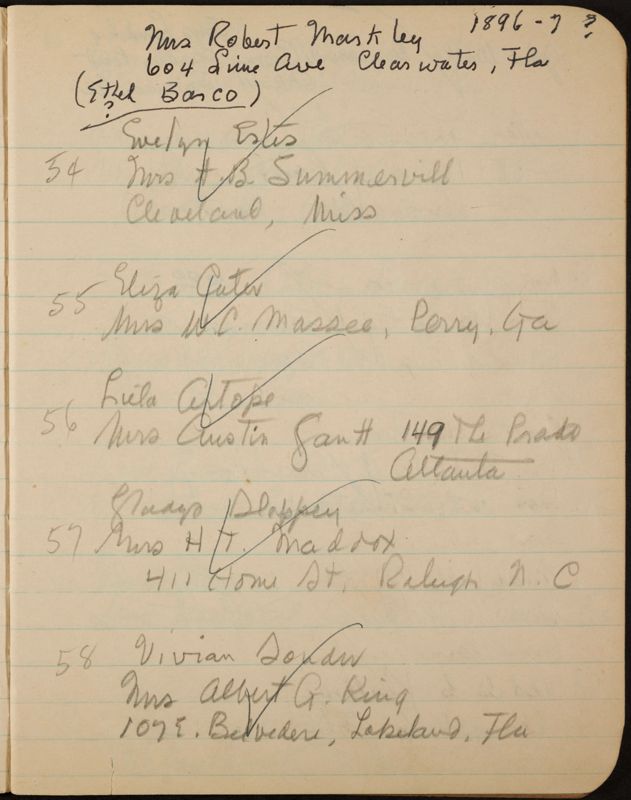 1896-7 ?
Mrs Robert Markley
604 Lime Ave Clearwater, Fla
(Ethel Barco)
?
Evelyn Estes
54 Mrs H.B. Summervill
Cleveland, Miss
Eliza Cater
55 Mrs W.C. Massee, Perry, Ga
Lula Artope
56 Mrs Austin Gantt 149 The Prado
Atlanta
Gladys Slappey
57 Mrs H T. Maddox
411 Home St, Raleigh N. C
58 Vivian
Mrs Albert G. King
107 E. Belvedere, Lakeland, Fla